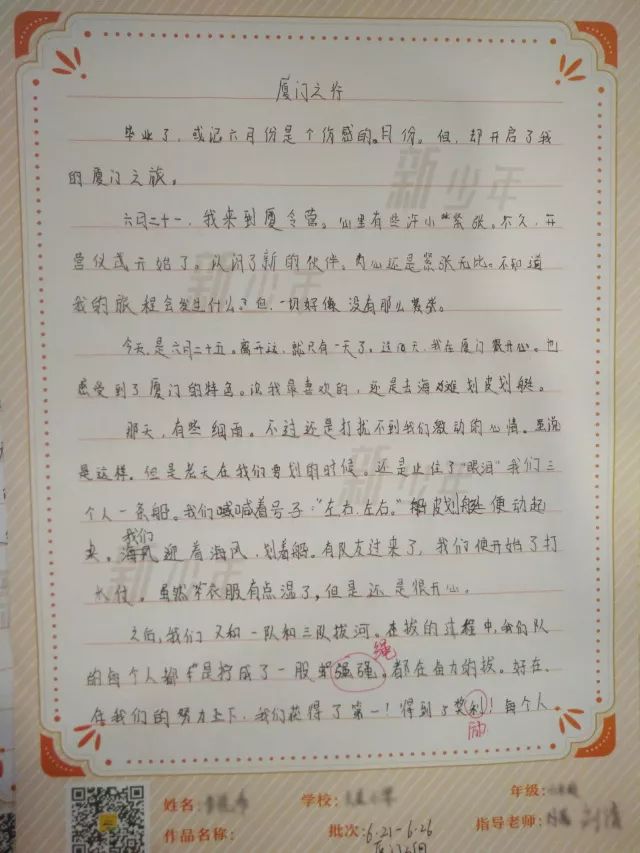 厦门之行
毕业了，或记六月份是个伤感的月份。但，却开启了我
的厦门之旅。
六月二十一，我来到厦令营。心里有些许小紧张。不久，开
营仪式开始了。认识了新的伙伴。内心还是紧张无比。不知道
我的旅程会发生什么？但，一切好像没有那么紧张。
今天，是六月二十五。离开这，就只有一天了。这四天，我在厦门很开心。也
感受到了厦门的特色。让我最喜欢的，还是去海滩划皮划艇。
那天，有些细雨。不过还是打扰不到我们激动的心情。虽说
是这样，但是老天在我们要划的时候，还是止住了“眼泪”我们三
个人一条船。我们喊喊着号子：“左右，左右。”皮划艇便动起
来。我们迎着海风，划着船。有队友过来了，我们便开始了打
水仗。虽然衣服有点湿了，但是还是很开心。
之后，我们又和一队和三队拔河。在拔的过程中，我们队
的每个人都是拧成了一股强绳。都在奋力的拔。好在，
在我们的努力之下，我们获得了第一！得到了奖利！每个人
绳
励
新少年
新少年
新少年
新少年
姓名：
学校：
年级：
作品名称：
批次：6.21-6.26
指导老师：